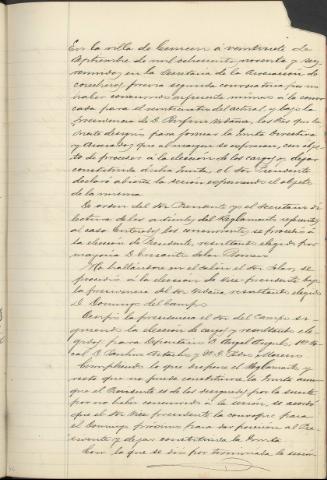 En la villa de a veintisiete de
Septiembre de mil ochocientos noventa y seis
reunidos en la Secretaría de la Asociación de
previa segunda convocatoria por no
haber concurrido suficiente número a la convo-
cada para el veinticuatro del actual y bajo la
presidencia de D. los que la
para formar la Junta Directiva
y que al margen se expresan, con obje-
to de proceder a la elección de los cargos y dejar
constituida dicha Junta, el Sor Presidente
declaró abierta la sesión expresando el objeto
de la misma
De orden del Presidente y el Secretario di
lectura de los artículos del Reglamento referentes
al caso. Enterados los concurrentes, se procedió a
la elección de Presidente, resultando elegido por
mayoría D. Solar
No hallándose en el salón el Sor Solar, se
procedió a la elección de Vice presidente bajo
la presidencia del Sor resultando elegido
D. Domingo del Campo.
Ocupó la presidencia el Sor del Campo si-
guiendo la elección de cargos y resultando ele-
gidos, para Depositario D. Angel Vo-
cal D. y D. Pedro
Cumpliendo lo que dispone el Reglamento y
visto que no puede constituirse la Junta aun-
que el Presidente es de los designados, por la suerte
por no haber concurrido a la sesión, se acordó
que el Sor Vice presidente la convoque para
el Domingo próximo para dar posesión al Pre-
sidente y dejar constituida la Junta.
Con lo que se dio por terminada la sesión